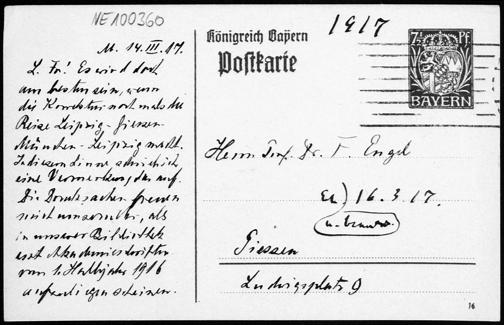 NE100360
1917
M. 14. III. 17.
L. Fr! Es wird dort
am besten sein, wenn
die Korrektur noch mals die
Reise Leipzig - Giessen
München - Leipzig macht.
In diesem Sinne schrieb ich
eine Vormerkung darauf.
Die Drucksachen freuen
mich umsomehr, als
in unserer Bibliothek
erst Akademieschriften
vom 1. Halbjahr 1916
aufzuliegen scheinen.
Königreich Bayern
Postkarte
7½ Pf
BAYERN
Herrn Prof. Dr. F. Engel
16. 3. 17.
Giessen
Ludwigsplatz 9
16